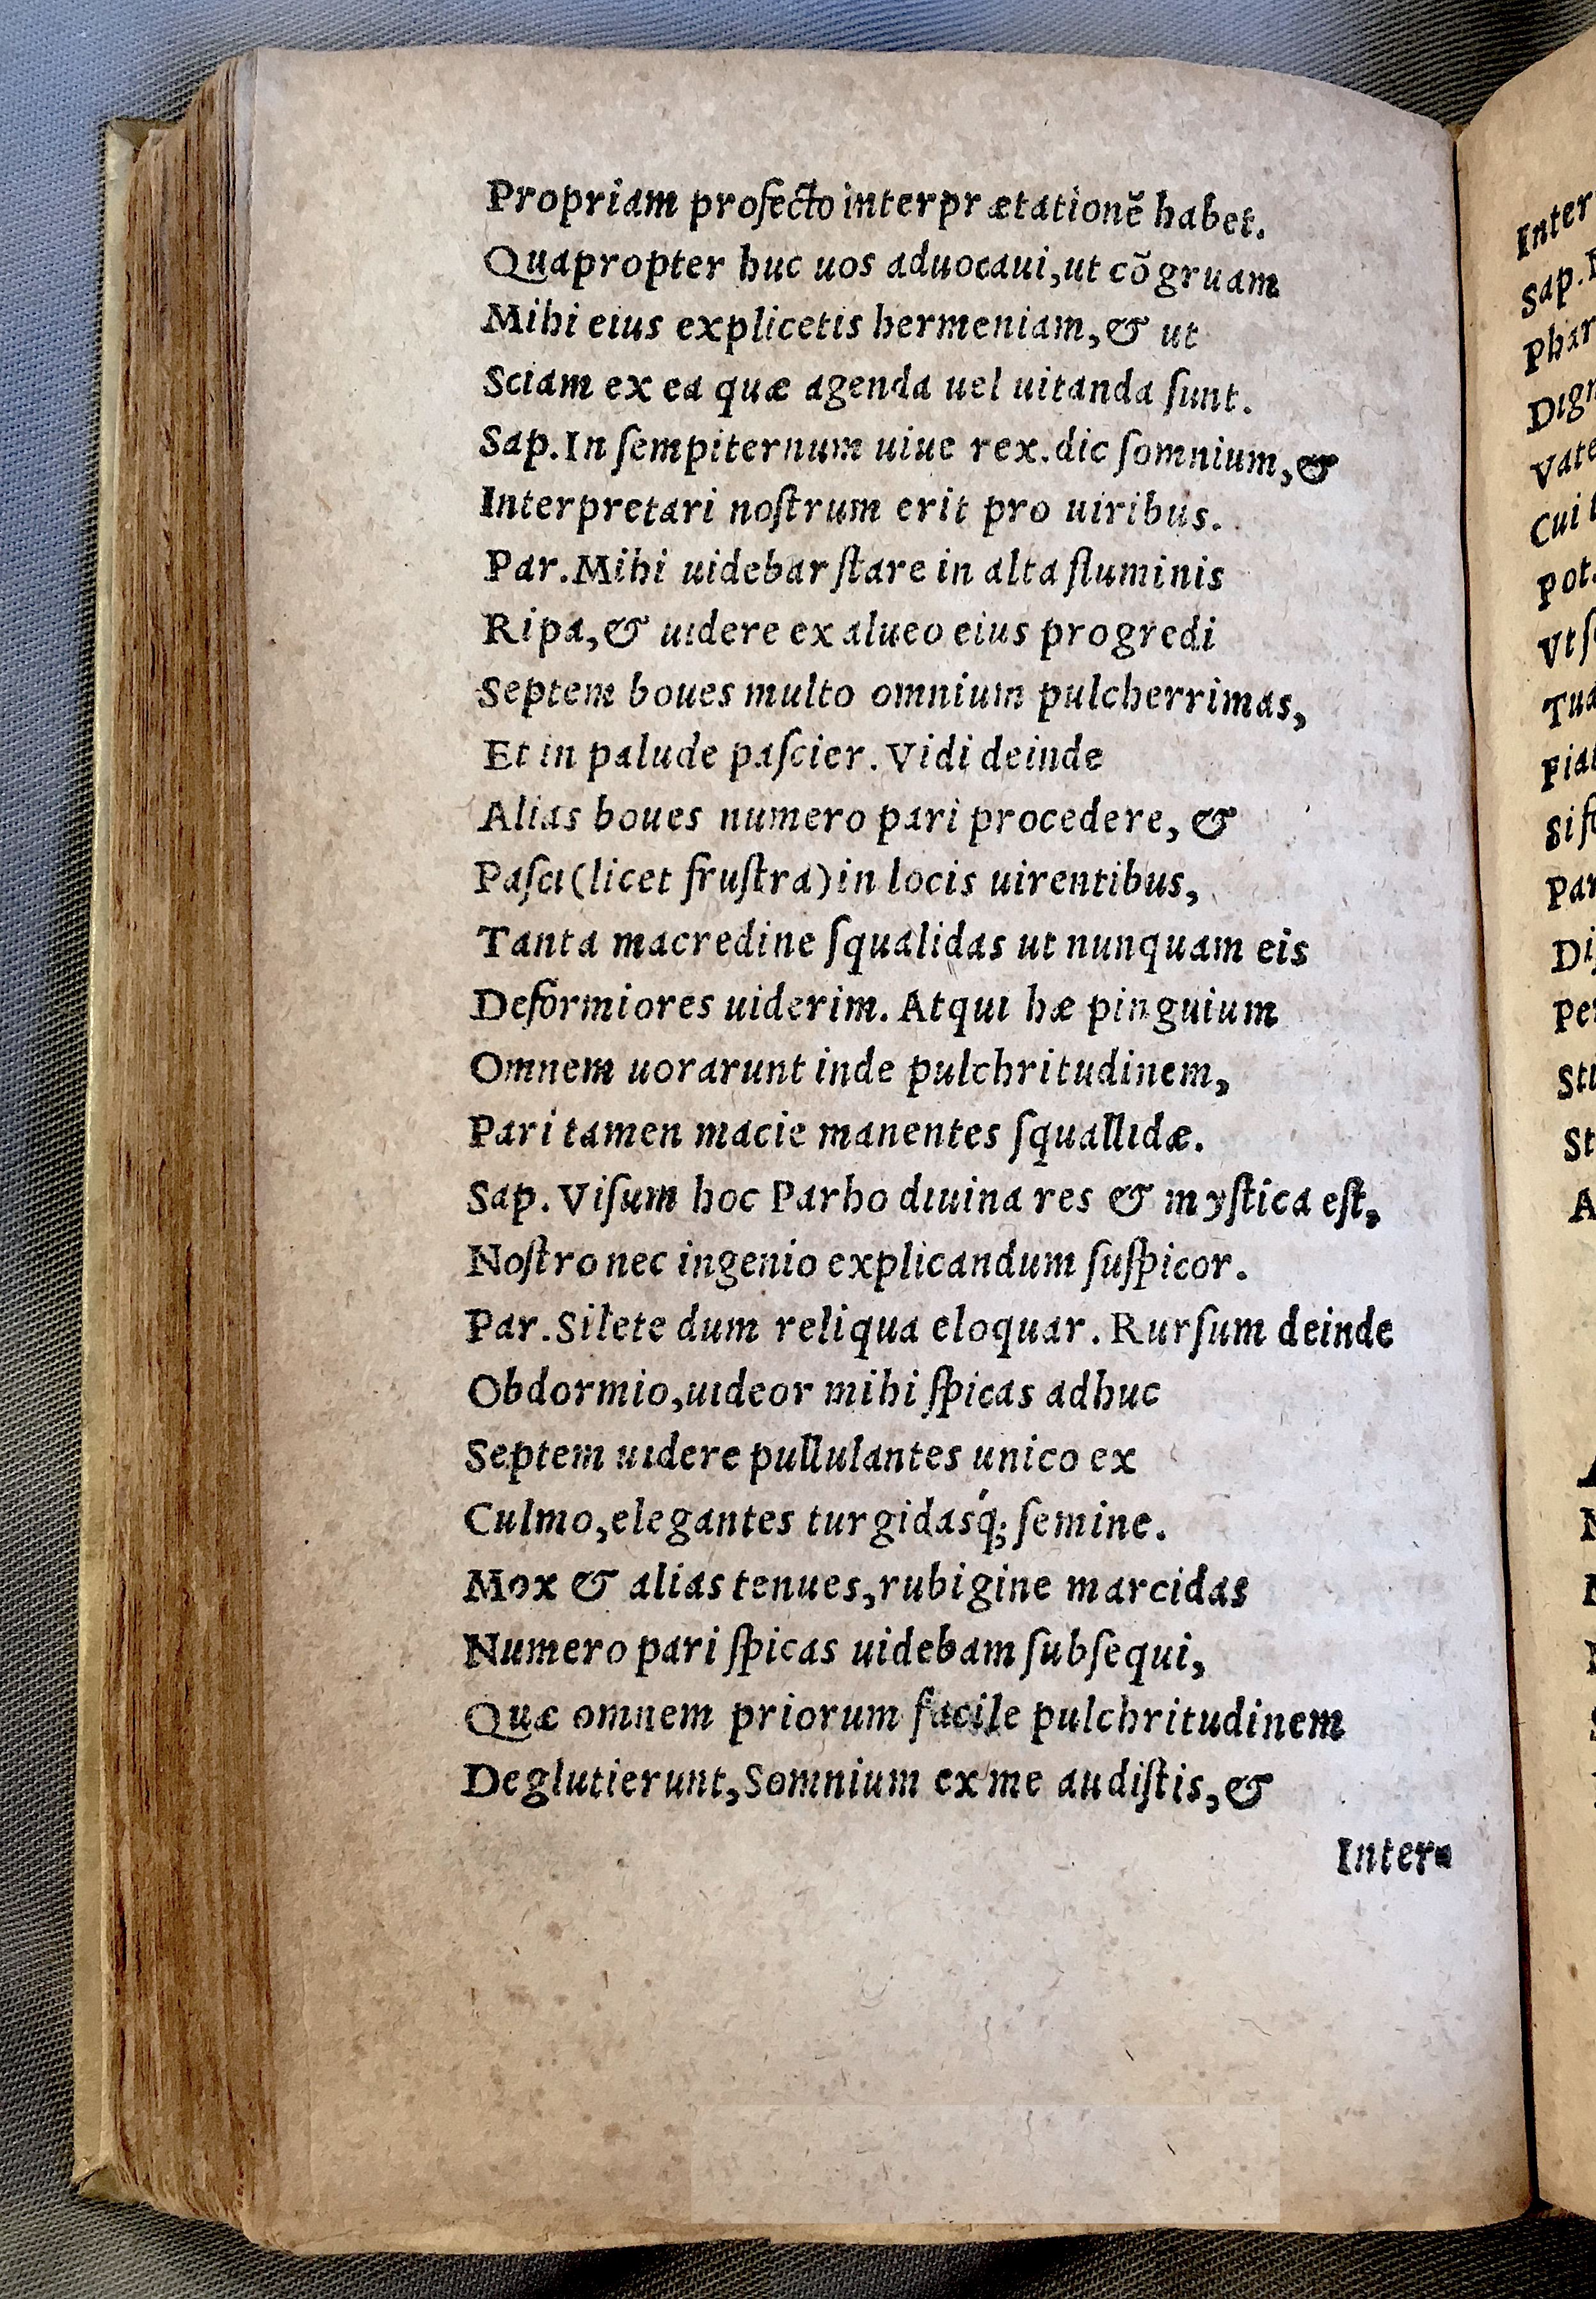 Propriam profecto interprætationẽ habet.
Quapropter huc uos aduocaui,ut cõgruam
Mihi eius explicetis hermeniam,& ut
Sciam ex ea quæ agenda uel uitanda ſunt.
Sap.In ſempiternum uiue rex.dic ſomnium,&
Interpretari noſtrum erit pro uiribus.
Par.Mihi uidebar ſtare in alta fluminis
Ripa,& uidere ex alueo eius progredi
Septem boues multo omnium pulcherrimas,
Et in palude paſcier. Vidi deinde
Alias boues numero pari procedere, &
Paſci(licet fruſtra)in locis uirentibus,
Tanta macredine ſqualidas ut nunquam eis
Deformiores uiderim. Atqui hæ pinguium
Omnem uorarunt inde pulchritudinem,
Pari tamen macie manentes ſquallidæ.
Sap. Viſum hoc Parho diuina res & myſtica eſt,
Noſtro nec ingenio explicandum ſuſpicor.
Par.Silete dum reliqua eloquar. Rurſum deinde
Obdormio,uideor mihi ſpicas adhuc
Septem uidere pullulantes unico ex
Culmo,elegantes turgidasq́; ſemine.
Mox & alias tenues,rubigine marcidas
Numero pari ſpicas uidebam ſubſequi,
Quæ omnem priorum facile pulchritudinem
Deglutierunt,Somnium ex me audiſtis,&
Inter-
Inter
Sap.
Phar
Dign
Vate
Cui
Pot
Vt
Tua
Fiat
Si
Par
Di
Per
St
St
A